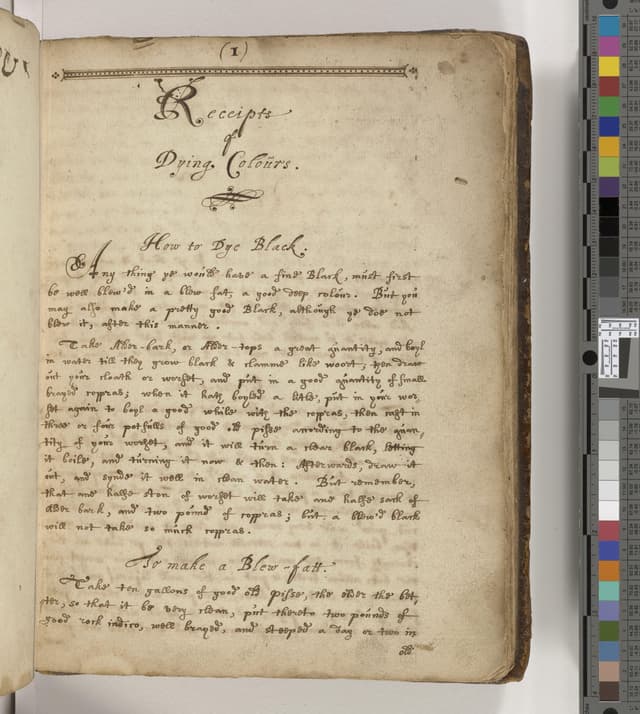 (1)
Receipts
of
Dying Colours.
How to Dye Black.
Any thing ye would have a fine Black, must first
be well blew'd in a blew fat, a good deep colour. But you
may also make a pretty good Black, although ye doe not
blew it, after this manner.
Take Aller-bark, or Aller-tops a great quantity, and boyl
in water till they grow black & clamme like woort, then draw
out your cloath or worset, and put in a good quantity of small
brayed coppras; when it hath boyled a litle, put in your wor,
set again to boyl a good while with the coppras, then cast in
three or four potfulls of good old pisse according to the quan,
tity of your worset, and it will turn a clear black, letting
it boile, and turning it now & then: Afterwards, draw it
out, and synde it well in clean water. But remember,
that ane halfe ston of worset will take ane halfe sack of
aller bark, and two pound of coppras; but a blew'd black
will not take so much coppras.
To make a Blew-fatt.
Take ten gallons of good old pisse, the older the bet,
ter, so that it be very clean, put thereto two pounds of
good rock indico, well brayed, and steeped a day or two in
old